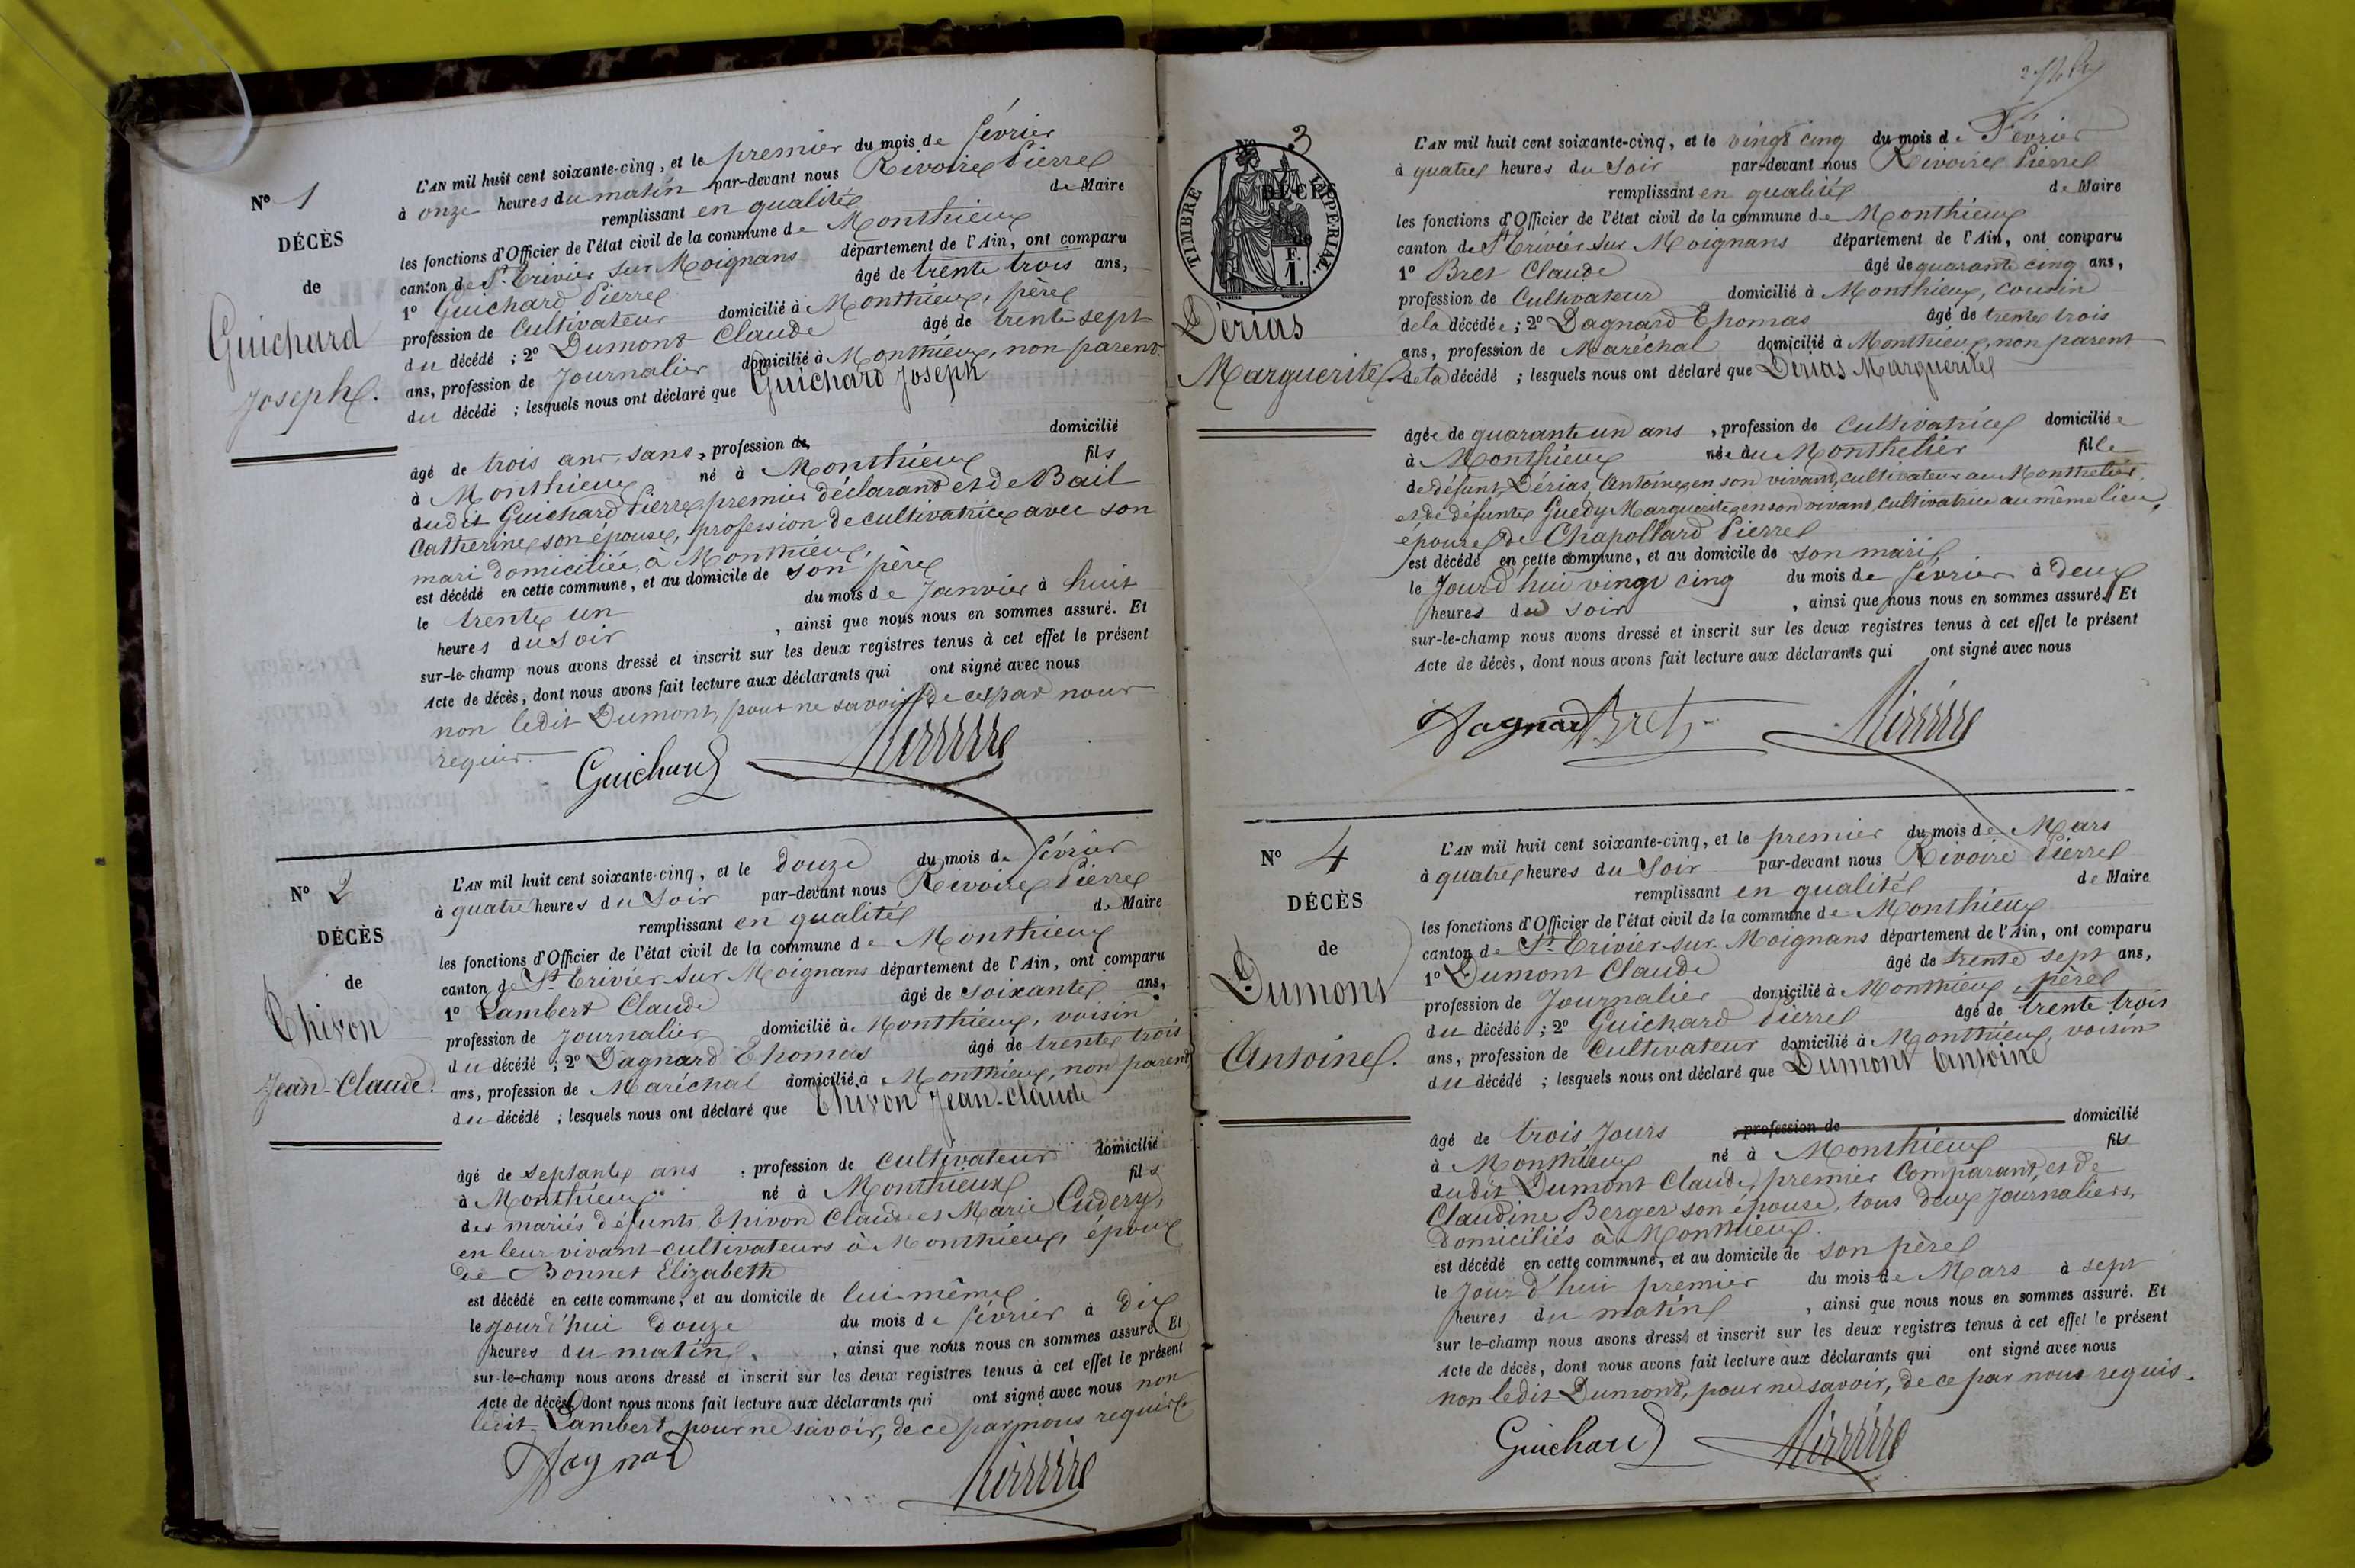 N° 1
DÉCÈS
de
Guichard
Joseph.
L'AN mil huit cent soixante-cinq, et le premier du mois de février
à onze heures du matin par-devant nous Rivoire Pierre
remplissant en qualité de Maire
les fonctions d'Officier de l'état civil de la commune de Monthieux
canton de St. Trivier sur Moignans département de l'Ain, ont comparu
1° Guichard Pierre âgé de trente trois ans,
profession de Cultivateur domicilié à Monthieux, père
du décédé ; 2° Dumont Claude âgé de trente sept
ans, profession de Journalier domicilié à Monthieux, non parent
du décédé ; lesquels nous ont déclaré que Guichard Joseph
domicilié
âgé de trois ans, sans, profession de
à Monthieux né à Monthieux fils
dudit Guichard Pierre premier déclarant et de Bail
Catherine son épouse, profession de cultivatrice avec son
mari domiciliée à Monthieux,
est décédé en cette commune, et au domicile de son père
le trente un du mois de Janvier à huit
heures du soir , ainsi que nous nous en sommes assuré. Et
sur-le-champ nous avons dressé et inscrit sur les deux registres tenus à cet effet le présent
Acte de décès, dont nous avons fait lecture aux déclarants qui ont signé avec nous
non ledit Dumont, pour ne savoir de ce par nous
requis.
Guichard
N° 2
DÉCÈS
de
Thivon
Jean-Claude.
L'AN mil huit cent soixante-cinq, et le douze du mois de février
à quatre heures du Soir par-devant nous Rivoire Pierre
remplissant en qualité de Maire
les fonctions d'Officier de l'état civil de la commune de Monthieux
canton de St. Trivier sur Moignans département de l'Ain, ont comparu
1° Lambert Claude âgé de soixante ans,
profession de Journalier domicilié à Monthieux, voisin
du décédé ; 2° Dagnard Thomas âgé de trente trois
ans, profession de Maréchal domicilié à Monthieux, non parent
du décédé ; lesquels nous ont déclaré que Thivon Jean-Claude
âgé de septante ans , profession de cultivateur domicilié
à Monthieux né à Monthieux fils
des mariés défunts Thivon Claude et Marie Cudery,
en leur vivant cultivateurs à Monthieux, époux
de Bonnet Elizabeth
est décédé en cette commune, et au domicile de lui-même
le jourd'hui douze du mois de février à dix
heures du matin , ainsi que nous nous en sommes assuré. Et
sur-le-champ nous avons dressé et inscrit sur les deux registres tenus à cet effet le présent
Acte de décès, dont nous avons fait lecture aux déclarants qui ont signé avec nous non
ledit Lambert, pour ne savoir, de ce par nous requis.
Dagnard
N° 3
DÉCÈS
de
TIMBRE IMPÉRIAL.
1 F.
Dérias
Marguerite
L'AN mil huit cent soixante-cinq, et le vingt cinq du mois de Février
à quatre heures du Soir par-devant nous Rivoire Pierre
remplissant en qualité de Maire
les fonctions d'Officier de l'état civil de la commune de Monthieux
canton de St Trivier sur Moignans département de l'Ain, ont comparu
1° Bret Claude âgé de quarante cinq ans,
profession de Cultivateur domicilié à Monthieux, cousin
de la décédée ; 2° Dagnard Thomas âgé de trente trois
ans, profession de Maréchal domicilié à Monthieux, non parent
de la décédé ; lesquels nous ont déclaré que Dérias Marguerite
âgée de quarante un ans , profession de cultivatrice domiciliée
à Monthieux née au Monthelier fille
de défunt Dérias Antoine, en son vivant, cultivateur au Monthelier,
et de défunte Guedy Marguerite en son vivant, cultivatrice au même lieu,
épouse de Chapollard Pierre
est décédé en cette commune, et au domicile de son mari
le Jourd'hui vingt cinq du mois de février à deux
heures du soir , ainsi que nous nous en sommes assuré. Et
sur-le-champ nous avons dressé et inscrit sur les deux registres tenus à cet effet le présent
Acte de décès, dont nous avons fait lecture aux déclarants qui ont signé avec nous
Dagnard Bret
N° 4
DÉCÈS
de
Dumont
Antoine.
L'AN mil huit cent soixante-cinq, et le premier du mois de Mars
à quatre heures du Soir par-devant nous Rivoire Pierre
remplissant en qualité de Maire
les fonctions d'Officier de l'état civil de la commune de Monthieux
canton de St. Trivier sur Moignans département de l'Ain, ont comparu
1° Dumont Claude âgé de trente sept ans,
profession de Journalier domicilié à Monthieux, père
du décédé ; 2° Guichard Pierre âgé de trente trois
ans, profession de Cultivateur domicilié à Monthieux, voisin
du décédé ; lesquels nous ont déclaré que Dumont Antoine
âgé de trois Jours , profession de domicilié
à Monthieux né à Monthieux fils
dudit Dumont Claude, premier Comparant, et de
Claudine Berger son épouse, tous deux Journaliers,
domiciliés à Monthieux.
est décédé en cette commune, et au domicile de son père
le Jour d'hui premier du mois de Mars à sept
heures du matin , ainsi que nous nous en sommes assuré. Et
sur le-champ nous avons dressé et inscrit sur les deux registres tenus à cet effet le présent
Acte de décès, dont nous avons fait lecture aux déclarants qui ont signé avec nous
non ledit Dumont, pour ne savoir, de ce par nous requis.
Guichard